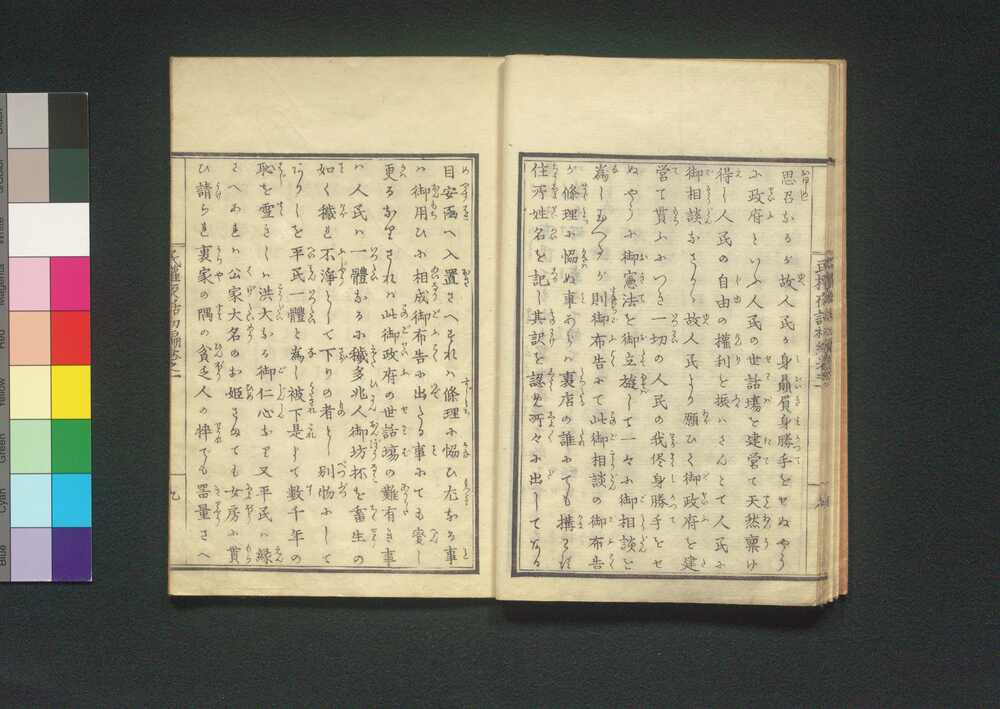 思召なるが故人民が身贔屓身勝手をせぬやう
に政府といふ人民の世話場を建営て天然稟け
得し人民の自由の権利を振はさんとて人民に
御相談なさるゝ故人民より願ひて御政府を建
営て貰ふにつき一切の人民の我侭身勝手をせ
ぬやうに御憲法を御立遊して一々に御相談を
為し
が則御布告にて此御相談の御布告
が條理に協ぬ事あらば裏店の誰にても搆はず
住所姓名を記し其訳を認め所々に出してある
民権夜話初編巻之一
目安函へ入置さへすれば條理に協ひたる事
は御用ひに相成御布告に出たる事にても変し
更るなりされば此御政府の世話場の難有き事
は人民は一體なるに穢多非人御坊抔を畜生の
如く穢れ不浄として下りの者とし別物にして
ありしを平民一體と為し被下是まで数千年の
恥を雪きしは洪大なる御仁心なり又平民は縁
さへあれば公家大名のお姫さまでも女房に貰
ひ請られ裏家の隅の貧乏人の忰でも器量さへ
民權夜話初編巻之一
九
Blue
Cyan
Green
Yellow
Red
Magenta
White